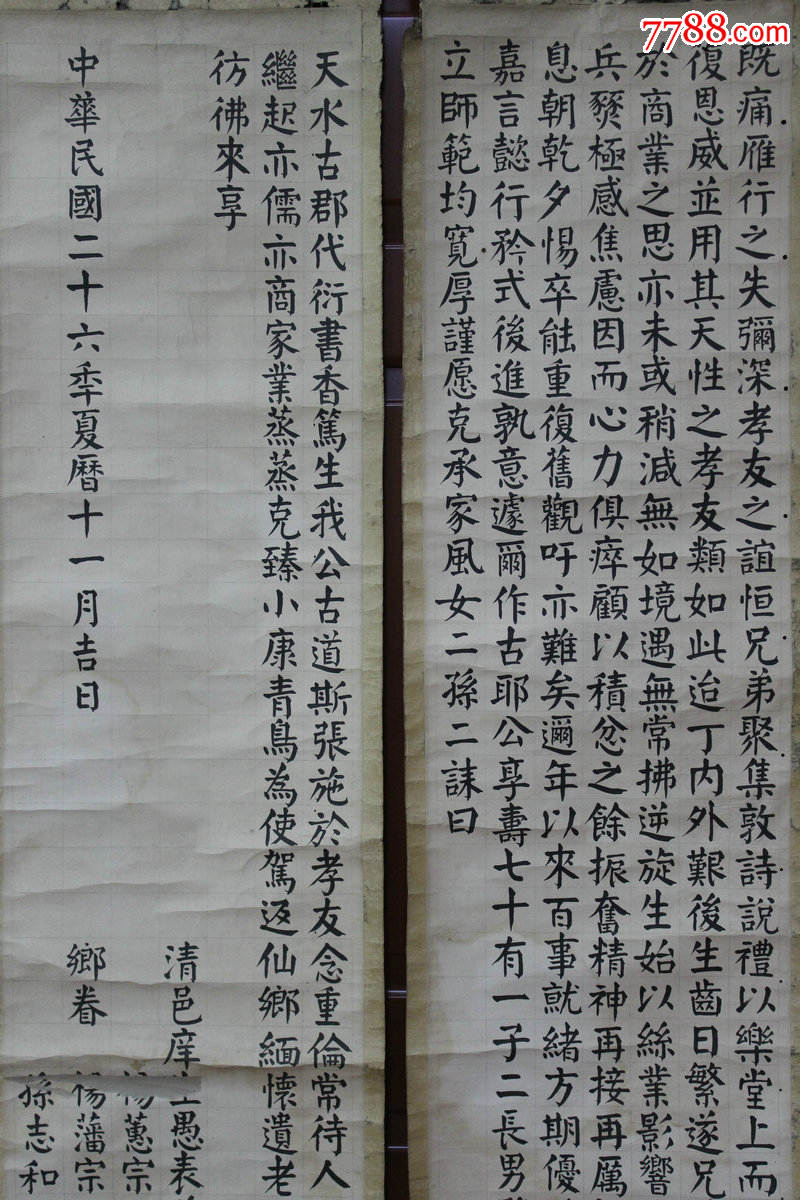 7788.com
既痛雁行之失彌深孝友之誼恒兄弟聚集敦詩說禮以樂堂上而
復恩威並用其天性之孝友類如此迨丁內外艱後生齒日繁遂兄
於商業之思亦未或稍減無如境遇無常拂逆旋生始以絲業影響
兵燹極感焦慮因而心力俱瘁顧以積忿之餘振奮精神再接再厲
息朝乾夕惕卒能重復舊觀吁亦難矣邇年以來百事就緒方期優
嘉言懿行矜式後進孰意遽爾作古耶公享壽七十有一子二長男
立師範均寬厚謹愿克承家風女二孫二誄曰
天水古郡代衍書香篤生我公古道斯張施於孝友念重倫常待人
繼起亦儒亦商家業蒸蒸克臻小康青鳥為使駕返仙鄉緬懷遺老
彷彿來享
清邑庠生愚表
中華民國二十六年夏曆十一月吉日
鄉眷
楊蕙宗
楊藩宗
孫志和